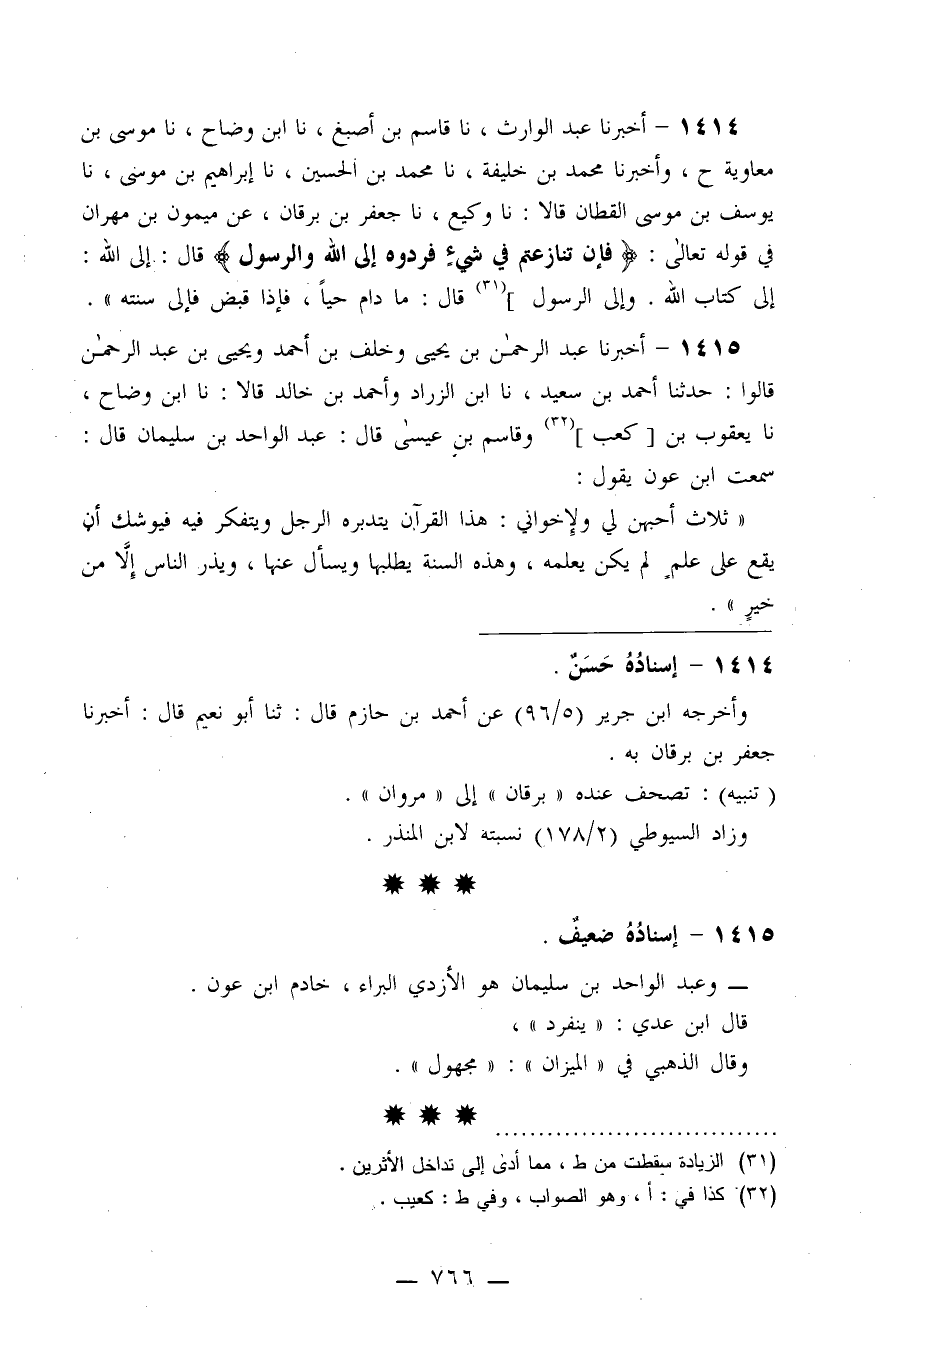 ١٤١٤ – أخبرنا عبد الوارث ، نا قاسم بن أصبغ ، نا ابن وضاح ، نا موسى بن
معاوية ح ، وأخبرنا محمد بن خليفة ، نا محمد بن الحسين ، نا إبراهيم بن موسى ، نا
يوسف بن موسى القطان قالا : نا وكيع ، نا جعفر بن برقان ، عن ميمون بن مهران
في قوله تعالى : ﴿ فإن تنازعتم في شيءٍ فردوه إلى الله والرسول ﴾ قال : إلى الله :
إلى كتاب الله . وإلى الرسول ](٣١) قال : ما دام حياً ، فإذا قبض فإلى سنته » .
١٤١٥ – أخبرنا عبد الرحمٰن بن يحيى وخلف بن أحمد ويحيى بن عبد الرحمٰن
قالوا : حدثنا أحمد بن سعيد ، نا ابن الزراد وأحمد بن خالد قالا : نا ابن وضاح ،
نا يعقوب بن [ كعب ](٣٢) وقاسم بن عيسىٰ قال : عبد الواحد بن سليمان قال :
سمعت ابن عون يقول :
« ثلاث أحبهن لي ولإخواني : هذا القرآن يتدبره الرجل ويتفكر فيه فيوشك أن
يقع على علمٍ لم يكن يعلمه ، وهذه السنة يطلبها ويسأل عنها ، ويذر الناس إلَّا من
خيرٍ » .
١٤١٤ – إسنادُهُ حَسَنٌ .
وأخرجه ابن جرير (٩٦/٥) عن أحمد بن حازم قال : ثنا أبو نعيم قال : أخبرنا
جعفر بن برقان به .
( تنبيه) : تصحف عنده « برقان » إلى « مروان » .
وزاد السيوطي (١٧٨/٢) نسبته لابن المنذر .
✸ ✸ ✸
١٤١٥ – إسنادُهُ ضعيفٌ .
— وعبد الواحد بن سليمان هو الأزدي البراء ، خادم ابن عون .
قال ابن عدي : « ينفرد » ،
وقال الذهبي في « الميزان » : « مجهول » .
✸ ✸ ✸
(٣١) الزيادة سقطت من ط ، مما أدىٰ إلى تداخل الأثرين .
(٣٢) كذا في : أ ، وهو الصواب ، وفي ط : كعيب .
— ٧٦٦ —